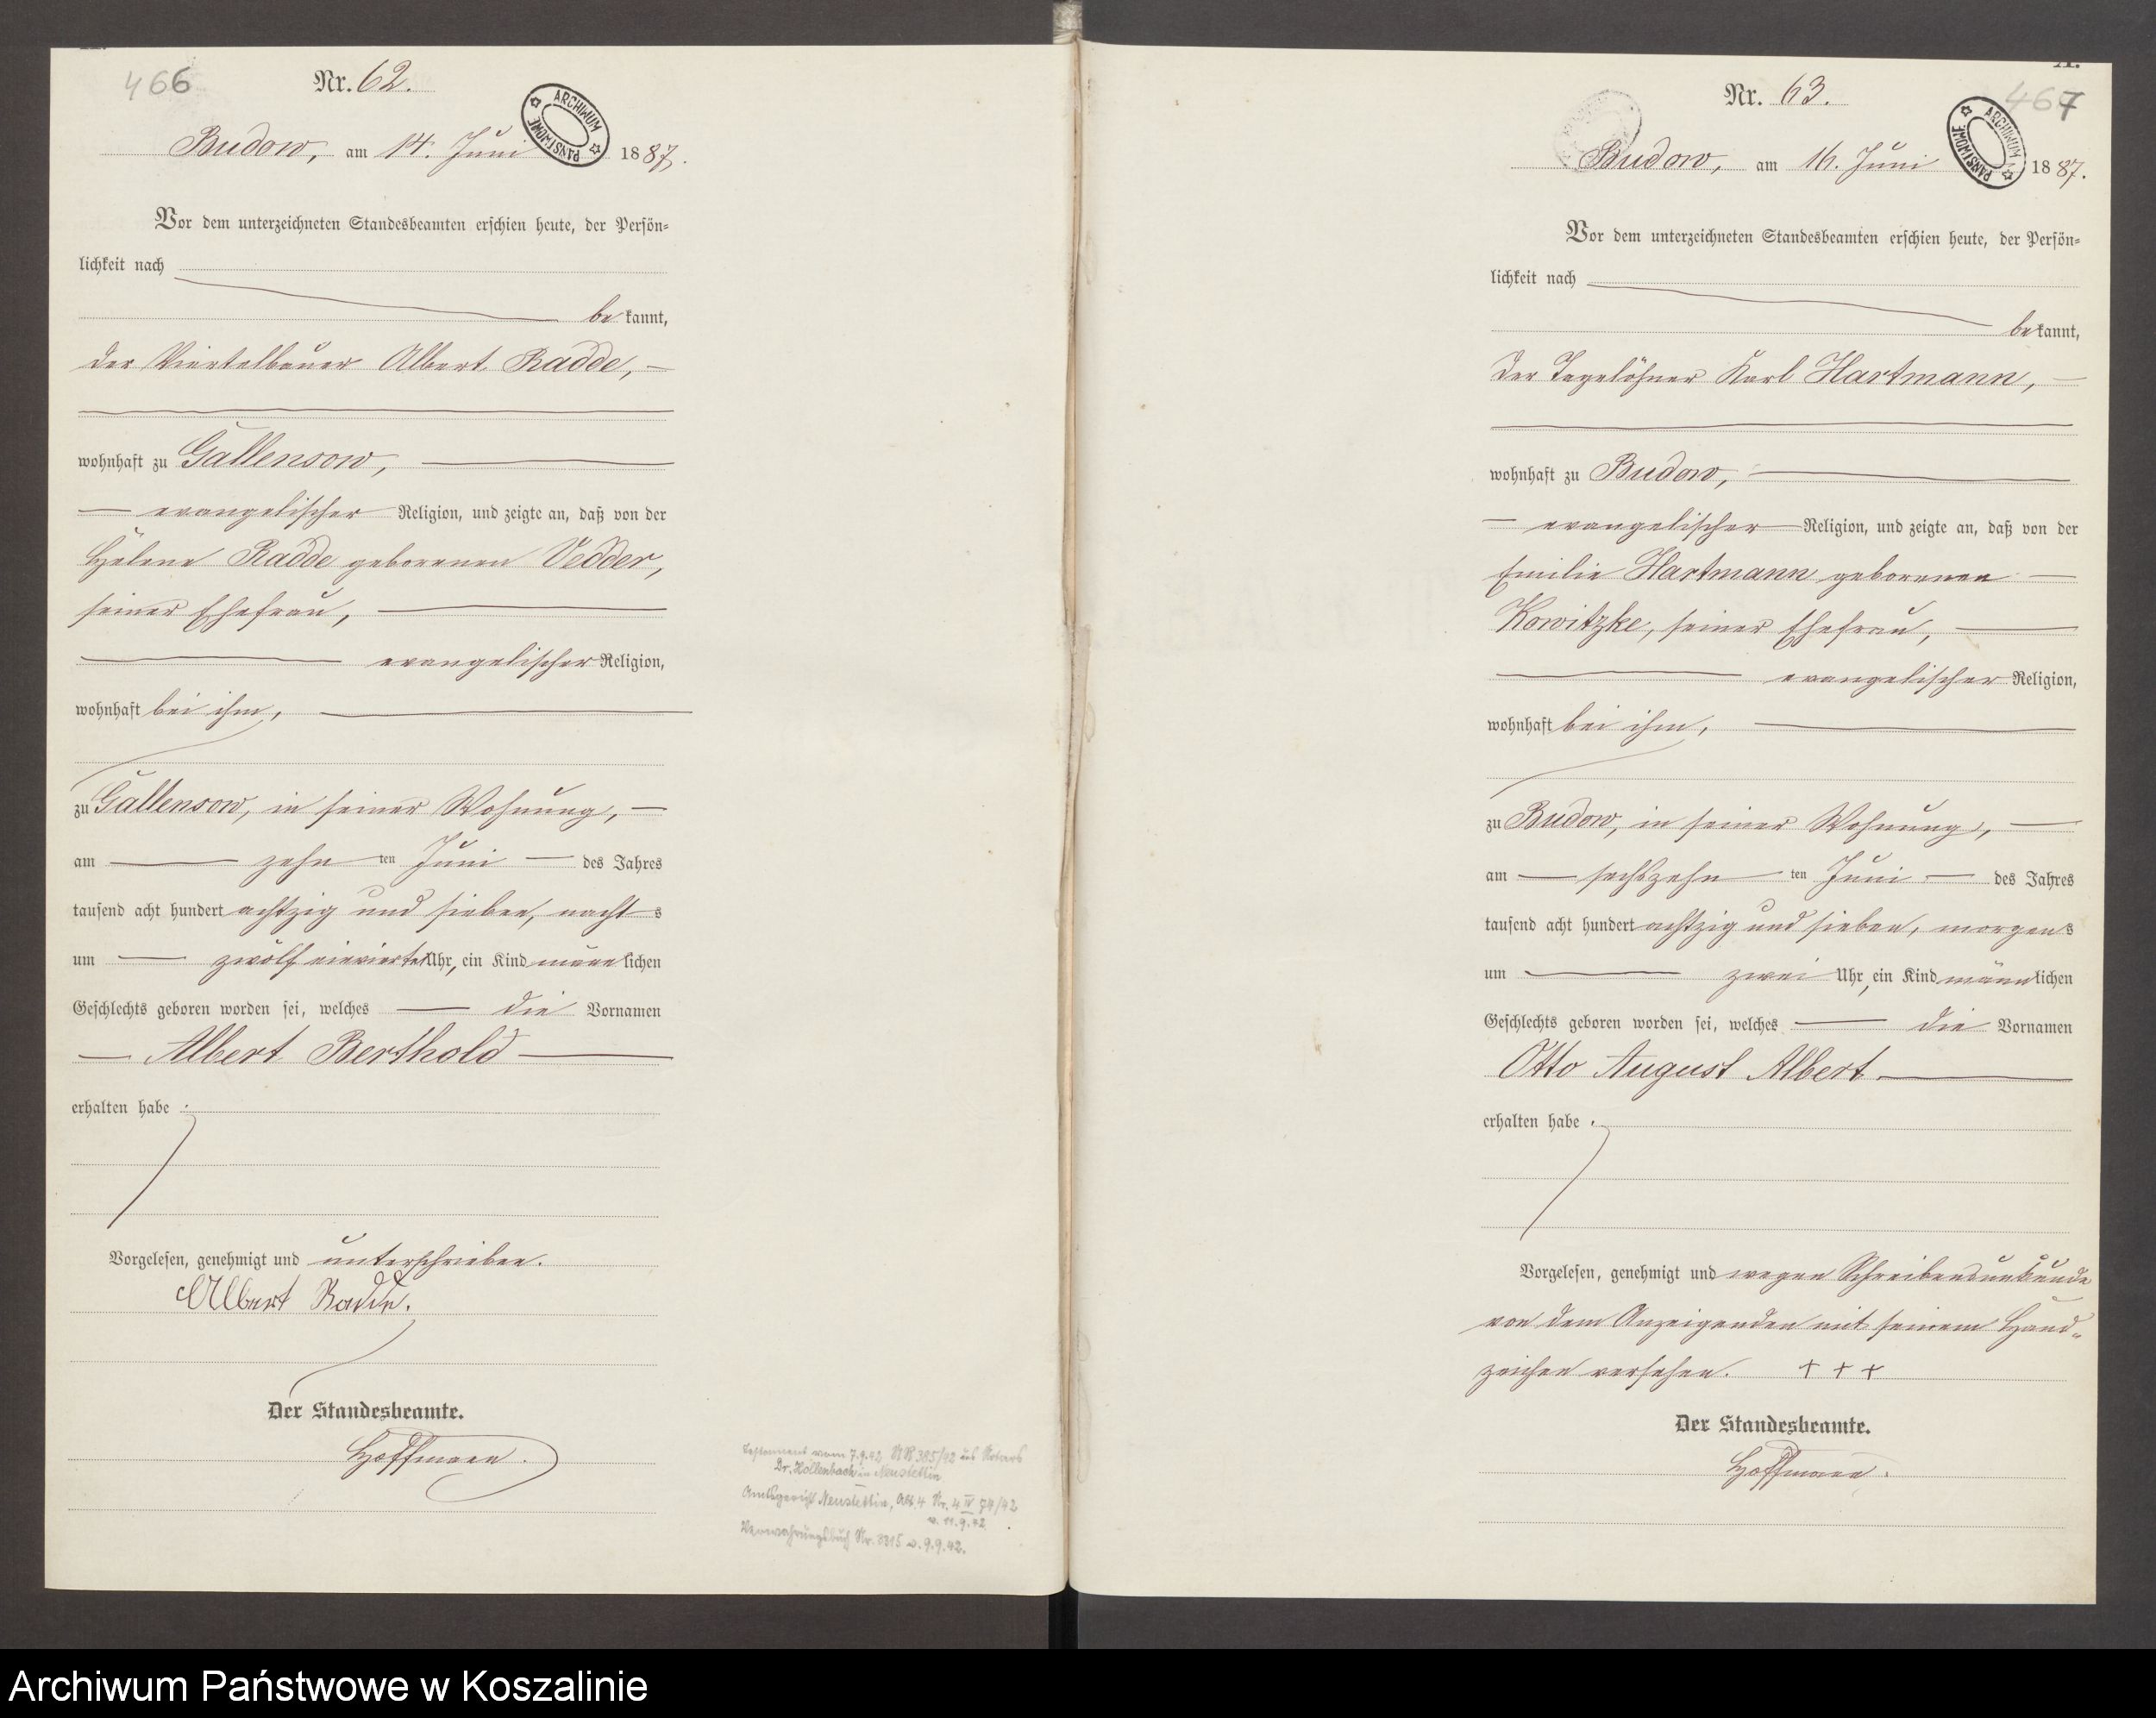 466
Nr. 62.
ARCHIWUM PAŃSTWOWE
Budow, am 14. Juni 1887.
Vor dem unterzeichneten Standesbeamten erschien heute, der Persön-
lichkeit nach
be kannt,
der Viertelbauer Albert Radde,
wohnhaft zu Gallensow,
evangelischer Religion, und zeigte an, daß von der
Helene Radde geborenen Vedder,
seiner Ehefrau,
evangelischer Religion,
wohnhaft bei ihm,
zu Gallensow, in seiner Wohnung,
am zehn ten Juni des Jahres
tausend acht hundert achtzig und sieben, nacht s
um zwölf einviertel Uhr, ein Kind männ lichen
Geschlechts geboren worden sei, welches die Vornamen
Albert Berthold
erhalten habe.
Vorgelesen, genehmigt und unterschrieben.
Albert Radde.
Der Standesbeamte.
Hoffmann.
Testament vom 7.9.42 UR 385/42 des Notars
Dr. Hollenbach in Neustettin
Amtsgericht Neustettin, Abt. 4 Nr. 4 IV 74/42
v. 11.9.42.
Verwahrungsbuch Nr. 8315 v. 9.9.42.
467
Nr. 63.
ARCHIWUM PAŃSTWOWE
Budow, am 16. Juni 1887.
Vor dem unterzeichneten Standesbeamten erschien heute, der Persön-
lichkeit nach
be kannt,
der Tagelöhner Karl Hartmann,
wohnhaft zu Budow,
evangelischer Religion, und zeigte an, daß von der
Emilie Hartmann geborenen
Kowitzke, seiner Ehefrau,
evangelischer Religion,
wohnhaft bei ihm,
zu Budow, in seiner Wohnung,
am sechszehn ten Juni des Jahres
tausend acht hundert achtzig und sieben, morgen s
um zwei Uhr, ein Kind männ lichen
Geschlechts geboren worden sei, welches die Vornamen
Otto August Albert
erhalten habe.
Vorgelesen, genehmigt und wegen Schreibensunkunde
von dem Anzeigenden mit seinem Hand-
zeichen versehen. + + +
Der Standesbeamte.
Hoffmann.
Archiwum Państwowe w Koszalinie